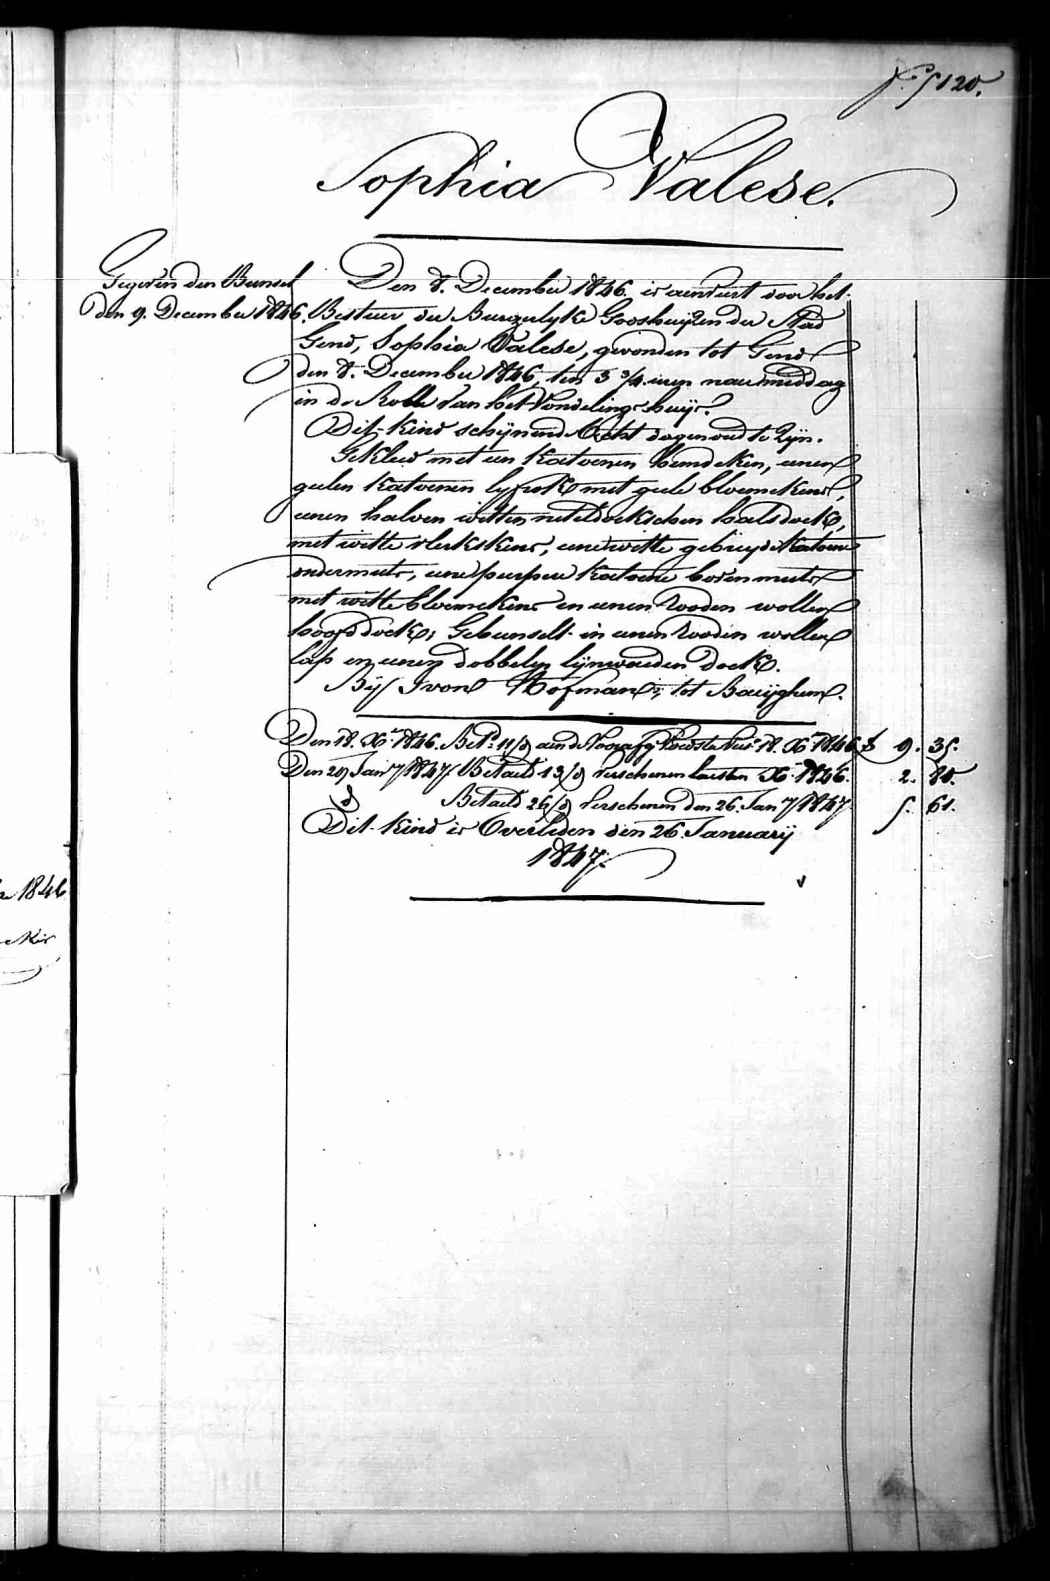 f.° 5120.
Sophia Valese.
Gegeven den Bunsel
den 9. December 1846.
Den 8. December 1846. is aenveert door het
Bestuer der Burgerlyke Godshuijzen der Stad
Gend, Sophia Valese, gevonden tot Gend
den 8. December 1846, ten 5 3/4 uren naermiddag
in de Rolle van het Vondelingshuijs.
Dit kind schijnend acht dagen oud te Zijn.
Gekleed met een katoenen hemdeken, eenen
geelen katoenen lyfrok met geele bloemekens,
eenen halven witten neteldoekschen halsdoek,
met witte vlekskens, eene witte gebreyde katoene
ondermuts, eene purpere katoene boven muts
met witte bloemekens en eenen rooden wollen
hoofddoek; Gebunselt in eenen rooden wollen
lap en eenen dobbelen lijnwaeden doek.
Bij Ivon Hofman, tot Baveghem.
Den 18. Xb. 1846. Bet. 11/d aen de Voorafg 18. Xb. 1846 9. 35.
Den 29 Jan 7/1847 Betaeld 13/d verschenen laesten Xb. 1846. 2. 80.
d° Betaeld 26/d verschenen den 26. Jan 7/1847 5. 61.
Dit kind is Overleden den 26. Januarij
1847.
1846